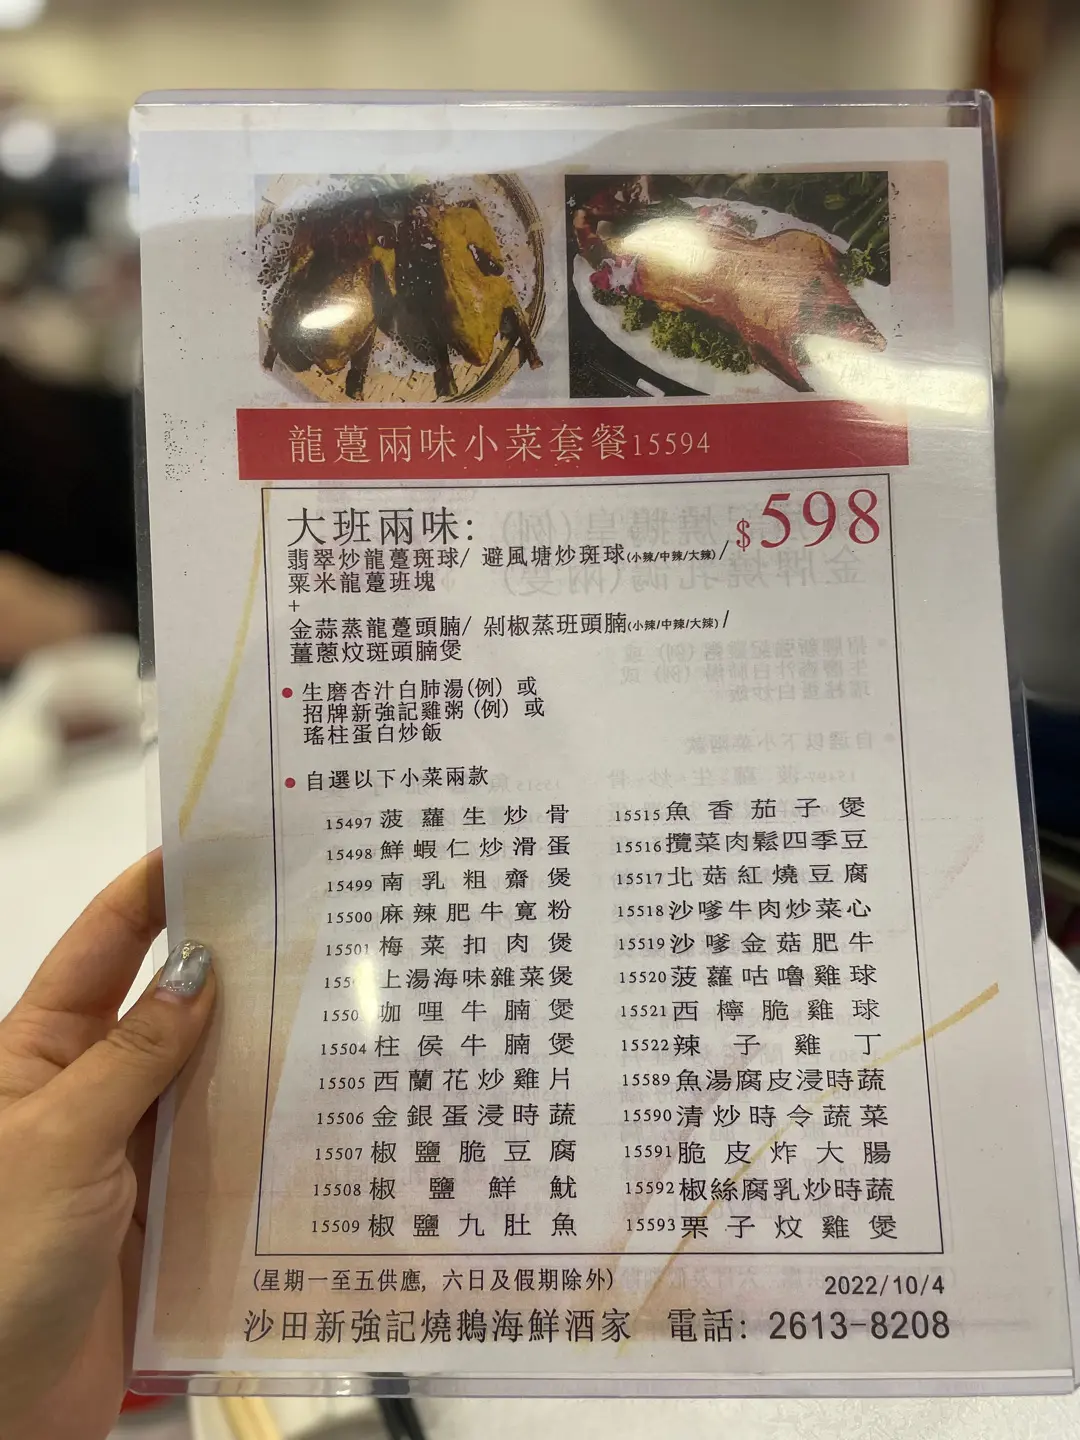 龍躉兩味小菜套餐15594
大班兩味:
$598
翡翠炒龍躉斑球/ 避風塘炒斑球(小辣/中辣/大辣)/
粟米龍躉班塊
+
金蒜蒸龍躉頭腩/ 剁椒蒸班頭腩(小辣/中辣/大辣)/
薑蔥炆斑頭腩煲
● 生磨杏汁白肺湯(例) 或
招牌新強記雞粥(例) 或
瑤柱蛋白炒飯
● 自選以下小菜兩款
15497 菠蘿生炒骨
15498 鮮蝦仁炒滑蛋
15499 南乳粗齋煲
15500 麻辣肥牛寬粉
15501 梅菜扣肉煲
上湯海味雜菜煲
咖哩牛腩煲
15504 柱侯牛腩煲
15505 西蘭花炒雞片
15506 金銀蛋浸時蔬
15507 椒鹽脆豆腐
15508 椒鹽鮮魷
15509 椒鹽九肚魚
15515 魚香茄子煲
15516 攬菜肉鬆四季豆
15517 北菇紅燒豆腐
15518 沙嗲牛肉炒菜心
15519 沙嗲金菇肥牛
15520 菠蘿咕嚕雞球
15521 西檸脆雞球
15522 辣子雞丁
15589 魚湯腐皮浸時蔬
15590 清炒時令蔬菜
15591 脆皮炸大腸
15592 椒絲腐乳炒時蔬
15593 栗子炆雞煲
(星期一至五供應, 六日及假期除外)
2022/10/4
沙田新強記燒鵝海鮮酒家 電話: 2613-8208